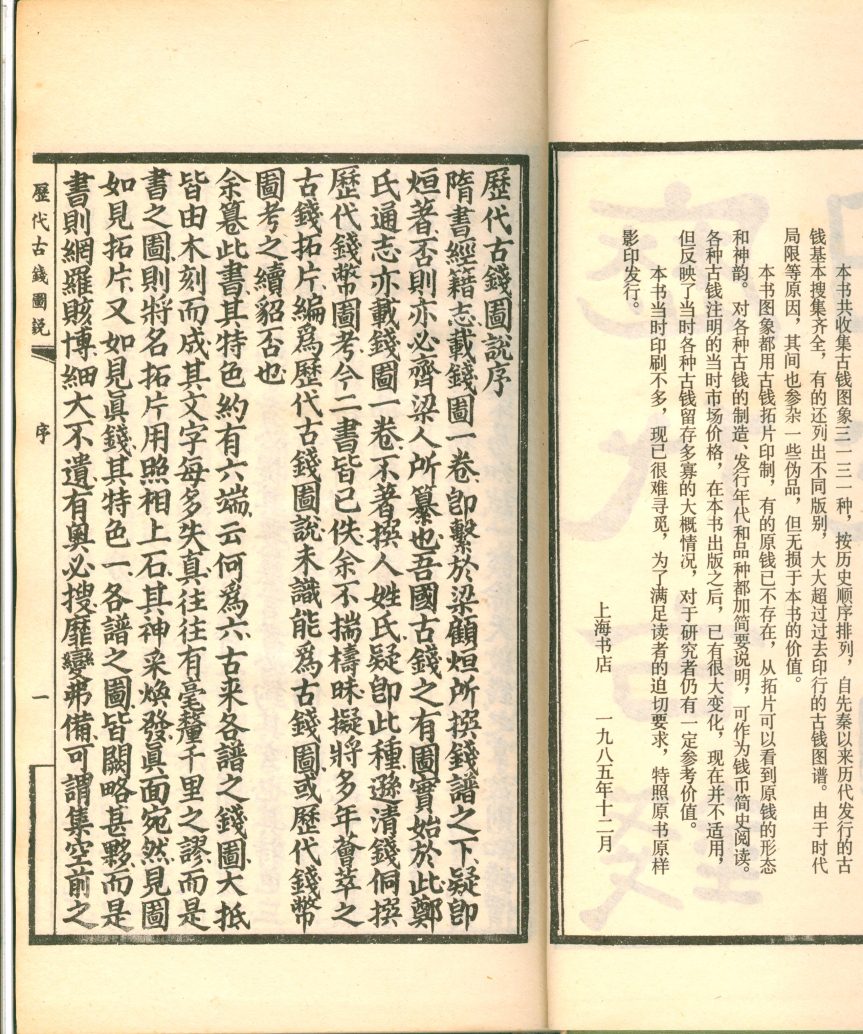 本书共收集古钱图象三一三一种，按历史顺序排列，自先秦以来历代发行的古
钱基本搜集齐全，有的还列出不同版别，大大超过过去印行的古钱图谱。由于时代
局限等原因，其间也参杂一些伪品，但无损于本书的价值。
本书图象都用古钱拓片印制，有的原钱已不存在，从拓片可以看到原钱的形态
和神韵。对各种古钱的制造、发行年代和品种都加简要说明，可作为钱币简史阅读。
各种古钱注明的当时市场价格，在本书出版之后，已有很大变化，现在并不适用，
但反映了当时各种古钱留存多寡的大概情况，对于研究者仍有一定参考价值。
本书当时印刷不多，现已很难寻觅，为了满足读者的迫切要求，特照原书原样
影印发行。
上海书店 一九八五年十二月
歷代古錢圖說序
隋書經籍志載錢圖一卷卽繫於梁顧烜所撰錢譜之下疑卽
烜著否則亦必齊梁人所纂也吾國古錢之有圖實始於此鄭
氏通志亦載錢圖一卷不著撰人姓氏疑卽此種遜清錢侗撰
歷代錢幣圖考今二書皆已佚余不揣檮昧擬將多年薈萃之
古錢拓片編爲歷代古錢圖說未識能爲古錢圖或歷代錢幣
圖考之續貂否也
余篹此書其特色約有六端云何爲六古來各譜之錢圖大抵
皆由木刻而成其文字每多失真往往有毫釐千里之謬而是
書之圖則將名拓片用照相上石其神采煥發眞面宛然見圖
如見拓片又如見眞錢其特色一各譜之圖皆闕略甚夥而是
書則網羅賅博細大不遺有奧必搜靡變弗備可謂集空前之
歷代古錢圖説
序
一